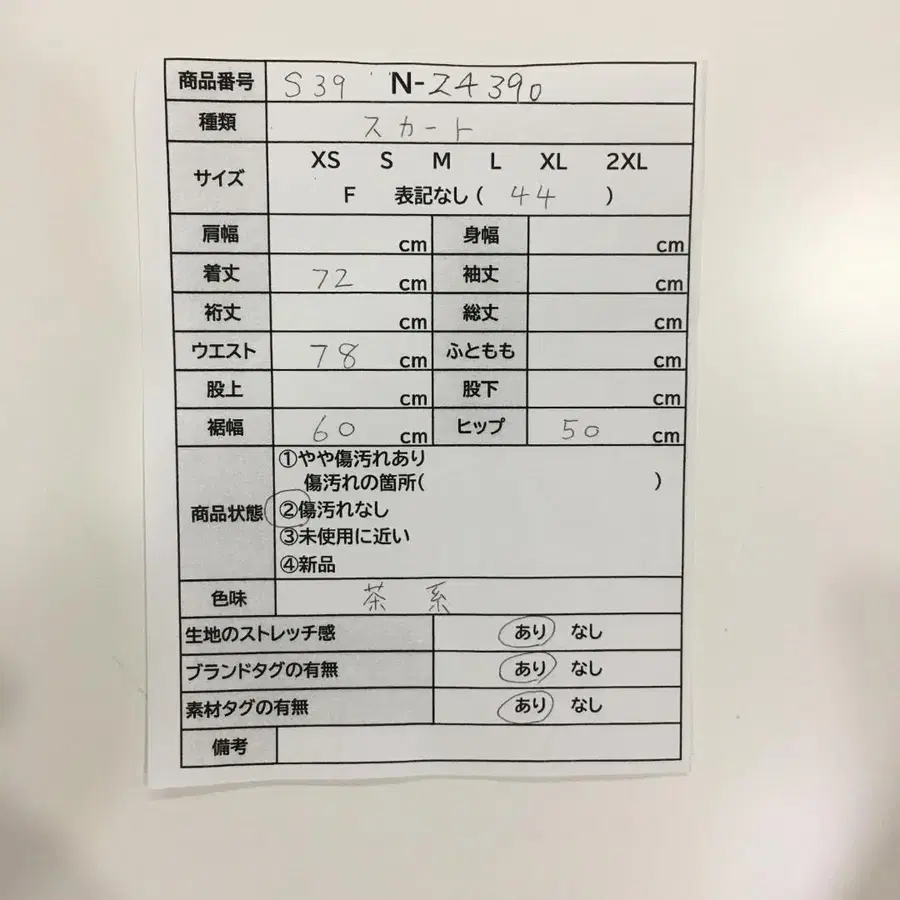 商品番号 S39 N-24390
種類 スカート
サイズ XS S M L XL 2XL
F 表記なし( 44 )
肩幅 cm 身幅 cm
着丈 72 cm 袖丈 cm
裄丈 cm 総丈 cm
ウエスト 78 cm ふともも cm
股上 cm 股下 cm
裾幅 60 cm ヒップ 50 cm
商品状態 ①やや傷汚れあり
傷汚れの箇所( )
②傷汚れなし
③未使用に近い
④新品
色味 茶系
生地のストレッチ感 あり なし
ブランドタグの有無 あり なし
素材タグの有無 あり なし
備考